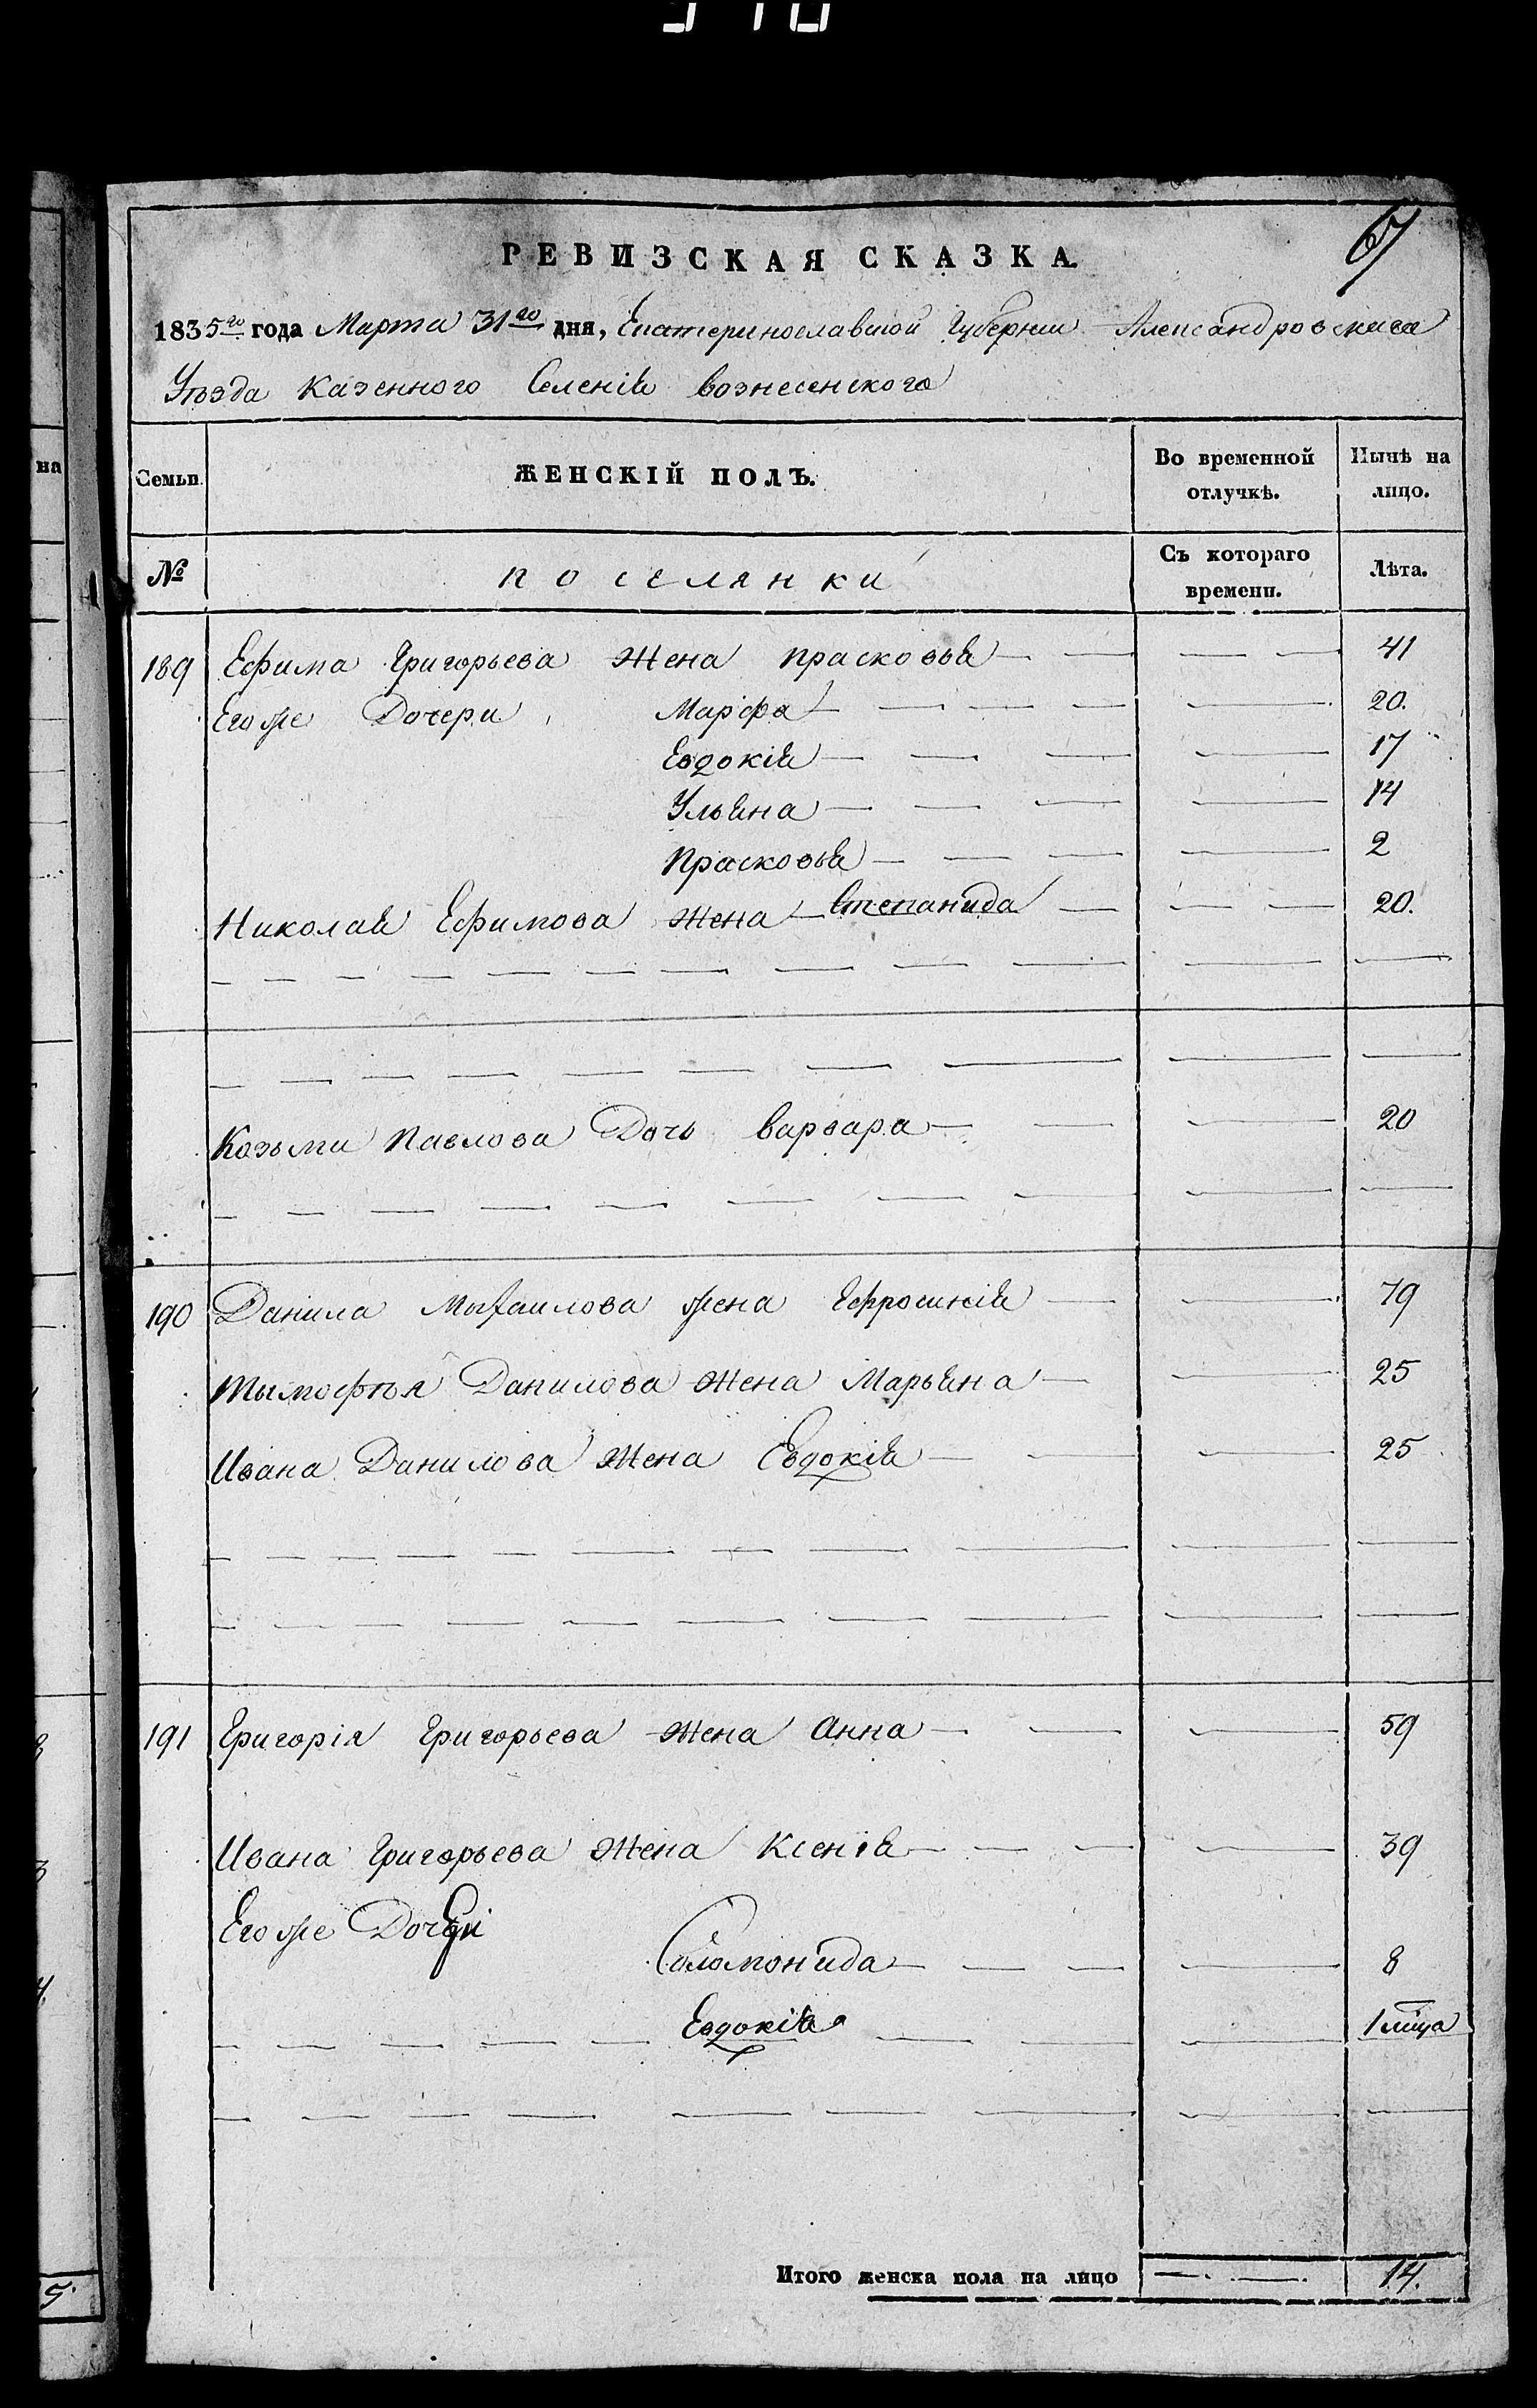 67
РЕВИЗСКАЯ СКАЗКА.
1835го года Марта 31го дня, Екатеринославской Губернии Александровскаго
Уѣзда казенного Селенія вознесенского
на
Семьи.
ЖЕНСКІЙ ПОЛЪ.
Во временной отлучкѣ.
Нынѣ на лицо.
№
поселянки
Съ котораго времени.
Лѣта.
189 Ефима Григорьева Жена прасковья 41
Егоже Дочери Марфа 20.
Евдокія 17
Ульяна 14
Прасковья 2
Николая Ефимова Жена Степанида 20.
Козьми Павлова Дочь варвара 20
190 Данила Михаилова жена Ефросинія 79
Тымофѣя Данилова Жена Марьяна 25
Ивана Данилова Жена Евдокія 25
191 Григорія Григорьева Жена Анна 59
Ивана Григорьева Жена Ксенія 39
Егоже Дочери
Соломонида 8
Евдокія 1 мца
Итого женска пола на лицо 14.
5.